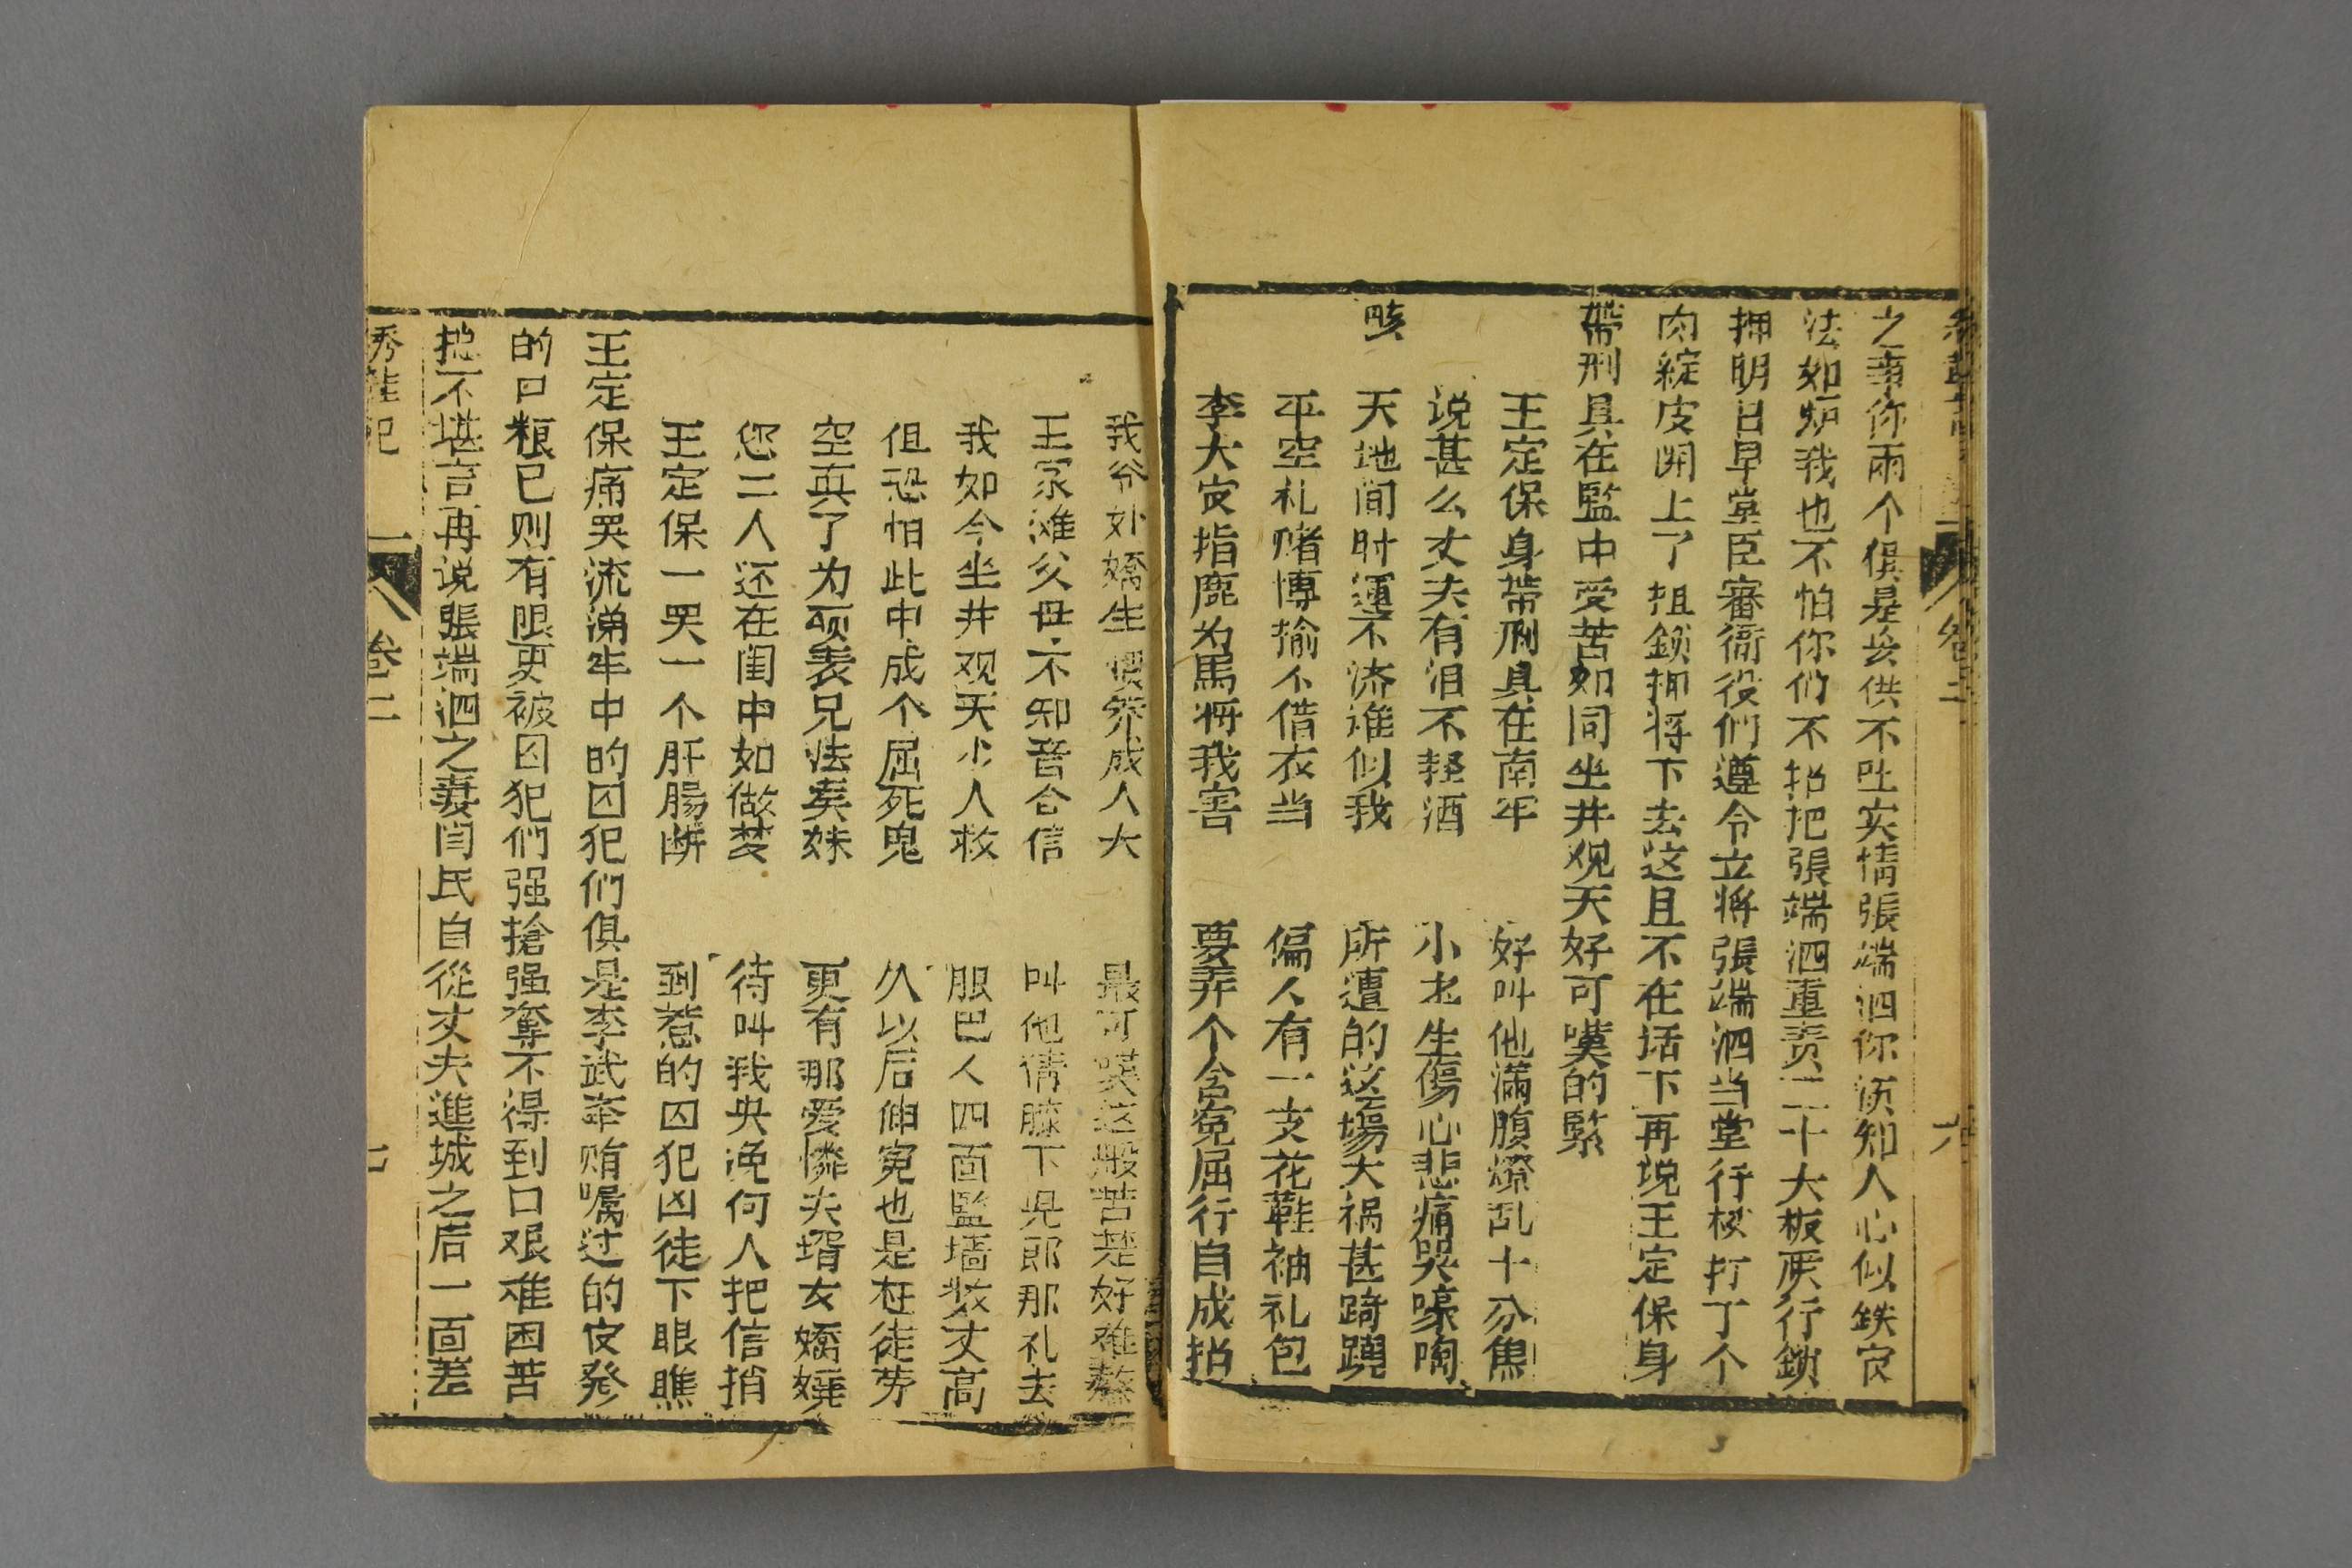 之事你兩个俱是妄供不吐实情張端泗你须知人心似鉄官
法如炉我也不怕你们不招把張端泗重责二十大板厌行鎖
押明日早堂臣審衙役们遵令立将張端泗当堂行杖打了个
肉綻皮開上了扭鎖押将下去这且不在话下再说王定保身
帶刑具在監中受苦如同坐井观天好可嘆的緊
王定保身帶刑具在南牢 好叫他滿腹燎乱十分焦
说甚么丈夫有泪不輕洒 小 生傷心悲痛哭嚎啕
咳 天地间时運不济谁似我 所遭的这場大祸甚蹊蹺
平空礼赌博揄不借衣当 偏人有一支花鞋袖礼包
李大官指鹿为馬将我害 要弄个含冤屈行自成招
我爷 嬌生惯养成人大 最可嘆这般苦楚好难熬
王家滩父母不知音合信 叫他倩膝下児郎那礼去
我如今坐井观天少人救 眼巴人四面監墙数丈高
但恐怕此中成个屈死鬼 久以后伸冤也是枉徒劳
空真了为 表兄法 妹 更有那爱憐夫壻女嬌嬈
您二人还在闺中如做梦 待叫我央浼何人把信捎
王定保一哭一个肝腸断 到惹的囚犯凶徒下眼瞧
王定保痛哭流涕牢中的囚犯们俱是李武举贿嘱过的官発
的口粮已则有限更被囚犯们强搶强奪不得到口艰难困苦
抱不堪言再说張端泗之妻闫氏自從丈夫進城之后一面差
绣鞋记 卷二 七